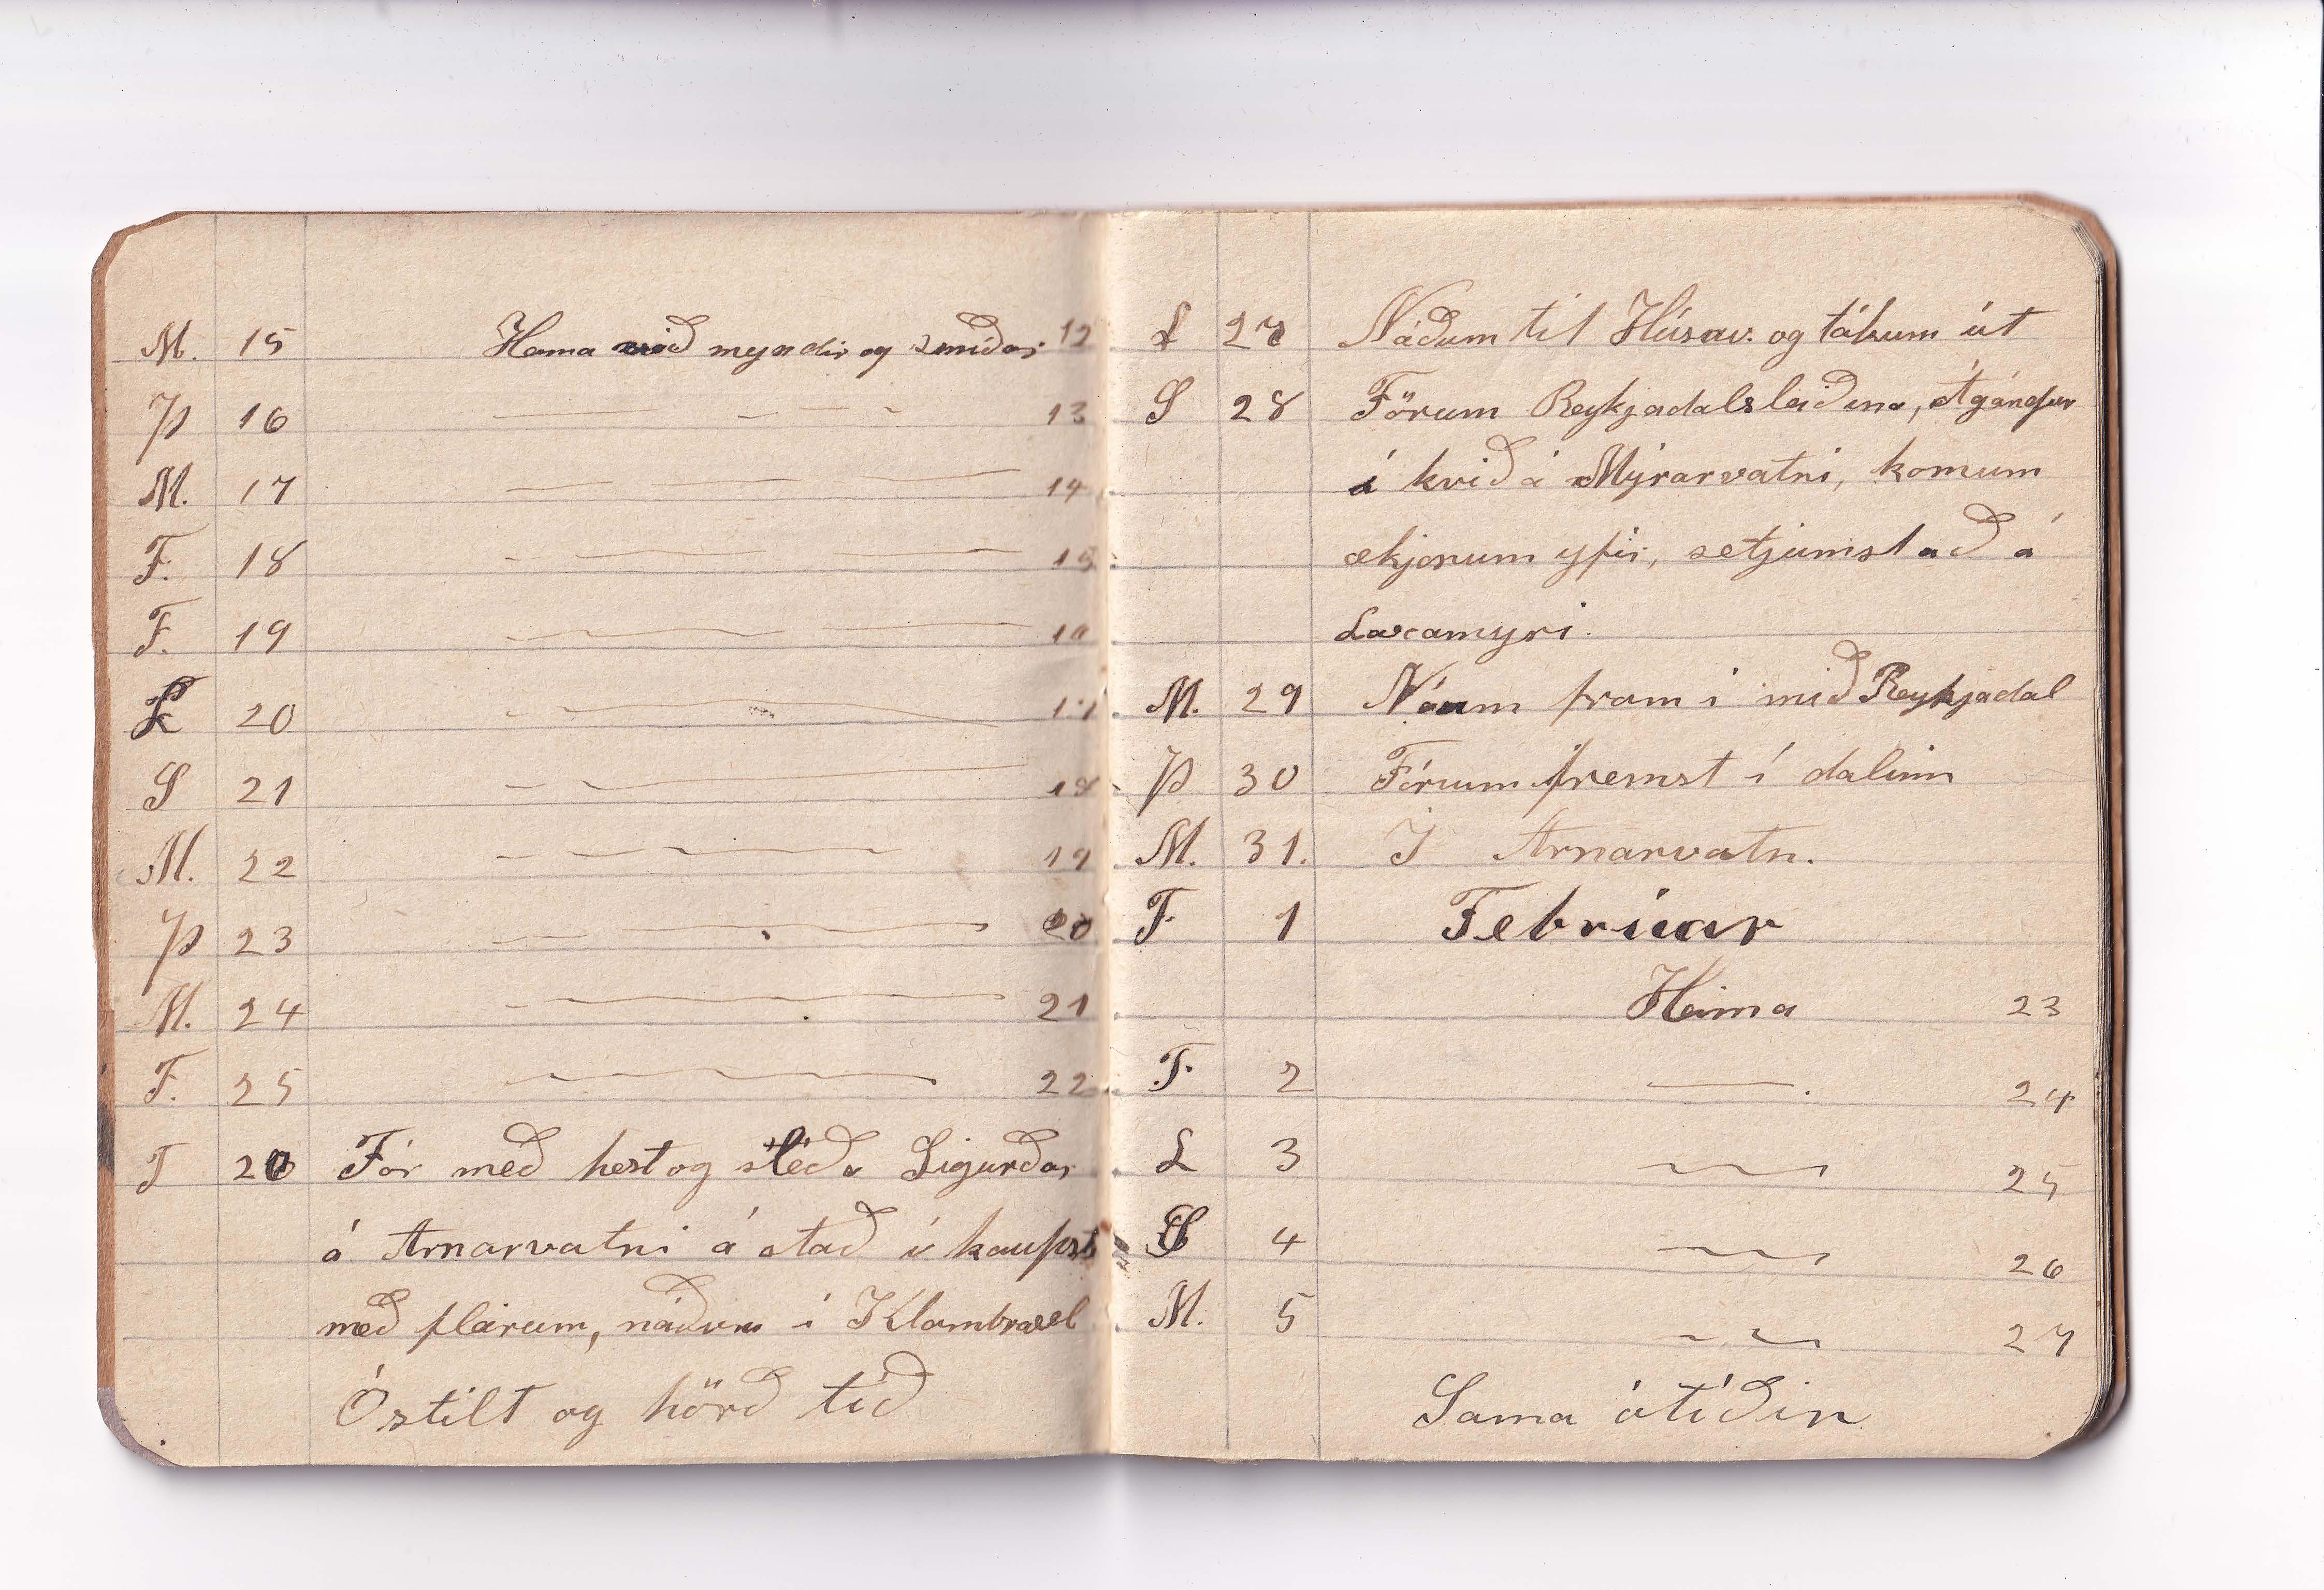 M. 15 Heima við myndir og smíðar 12
Þ 16 — - — - 13
M. 17 — — — 14
F. 18 - — — — 15
F. 19 — — — 16
L 20 - — — 17
S 21 - — 18
M. 22 - — — 19
Þ 23 — — — 20
M. 24 — — 21
F. 25 — — 22
F 26 Fór með hest og sleða Sigurðar
á Arnarvatni á stað í kaupst
með fleirum, náðum í Klambrasel
Óstilt og hörð tíð
L 27 Náðum til Húsav. og tókum út
S 28 Förum Reykjadalsleiðina,
á kvið á Mýrarvatni, komum
ækjonum yfir, setjumst að á
Laxamyri.
M. 29 Náum fram í mið Reykjadal
Þ 30 Förum fremst í dalinn
M. 31. Í Arnarvatn.
F. 1 Febrúar
Heima 23
F. 2 — . 24
L 3 — 25
S 4 — 26
M. 5 — 27
Sama ótíðin